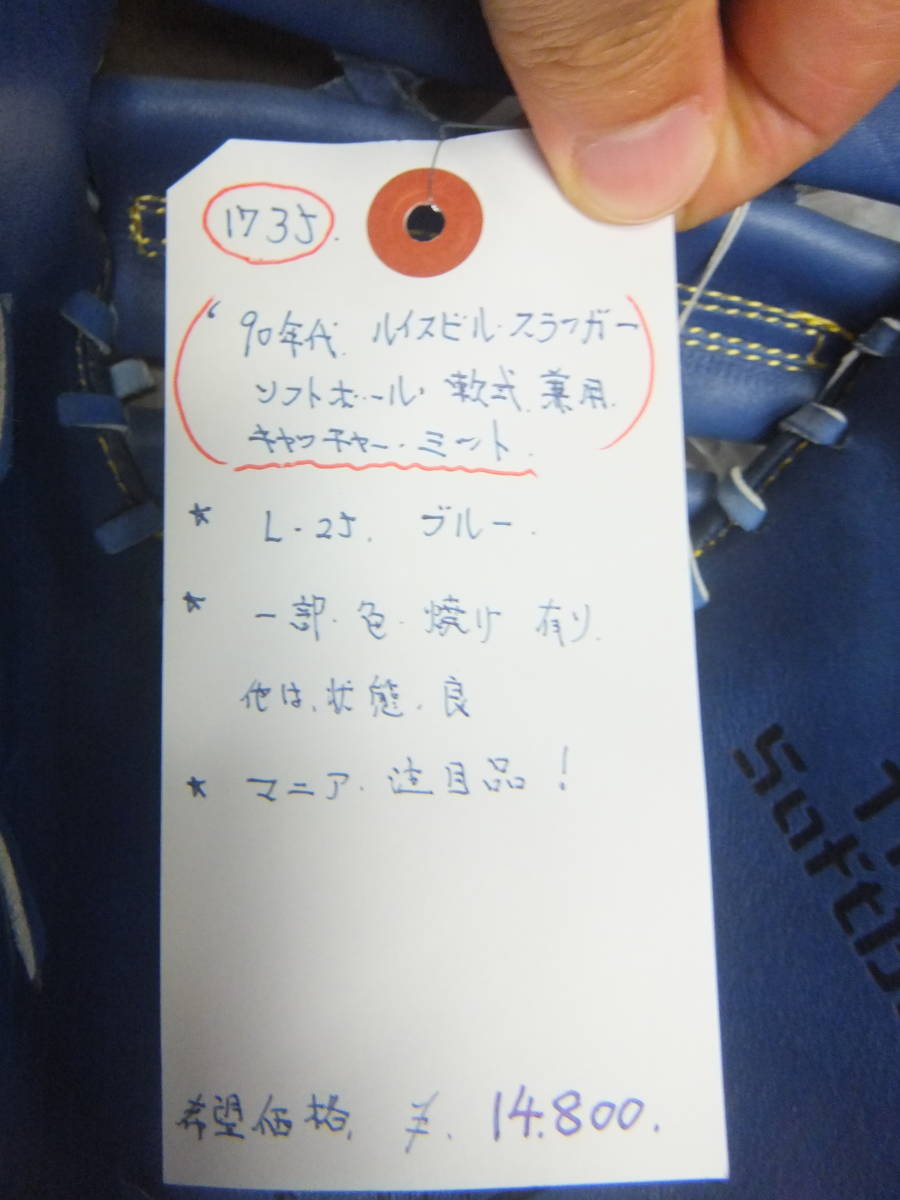 1735.
'90年代 ルイスビル・スラッガー
ソフトボール・軟式 兼用
キャッチャー・ミット
★ L-25. ブルー.
★ 一部・色・焼け 有り.
他は、状態・良
★ マニア・注目品!
希望価格, ¥. 14.800.